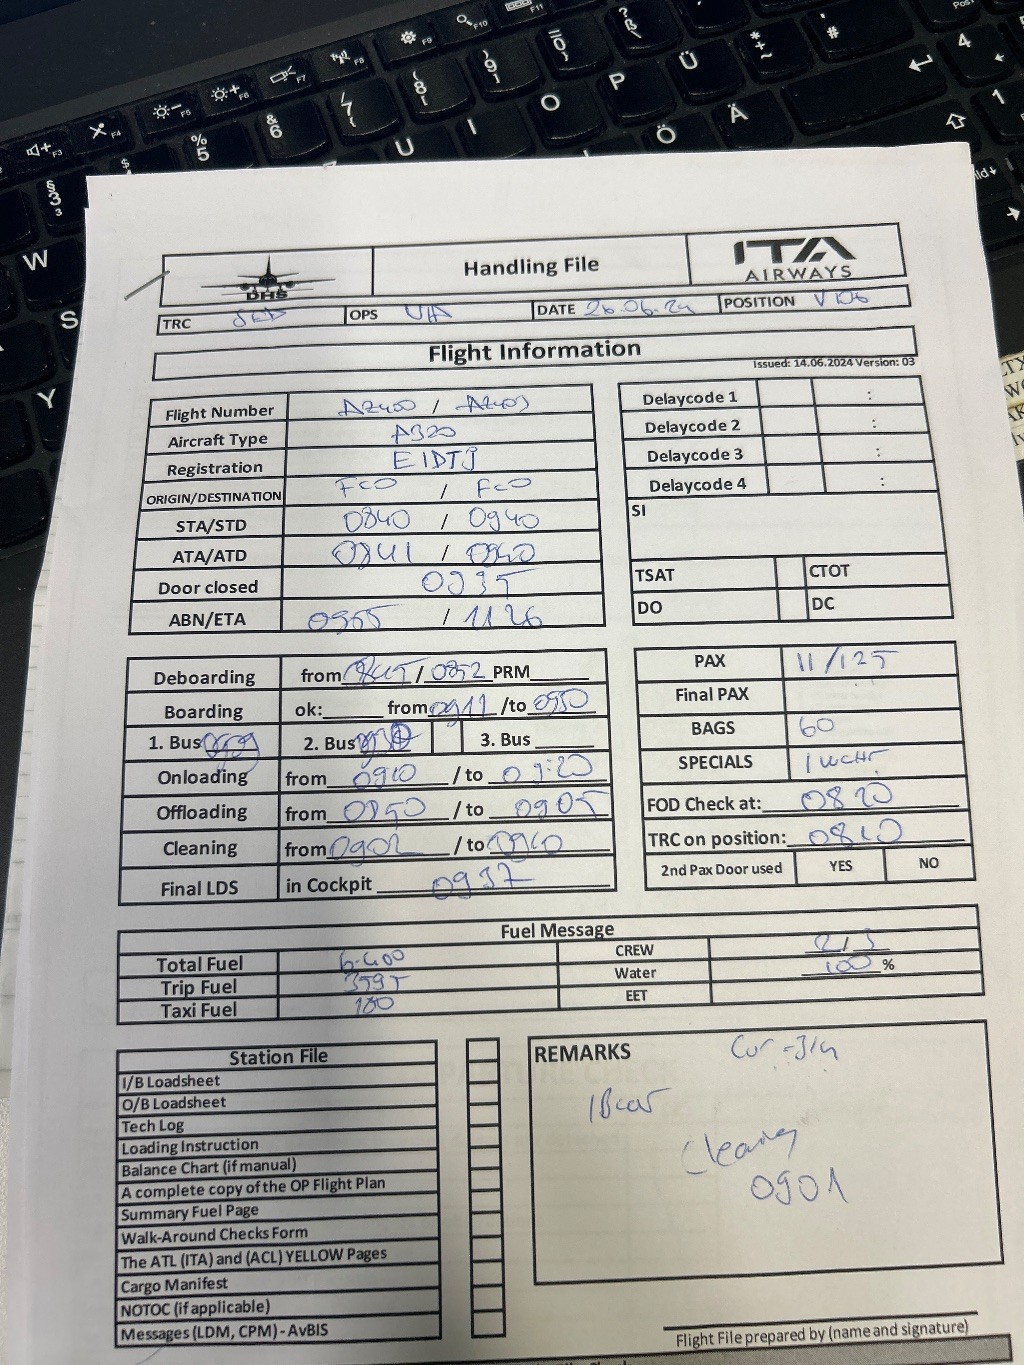 DHS
Handling File
ITA
AIRWAYS
TRC OPS DATE 26.06.24 POSITION V106
Flight Information
Issued: 14.06.2024 Version: 03
Flight Number AZ400 / AZ403
Aircraft Type A320
Registration EIDTJ
ORIGIN/DESTINATION FCO / FCO
STA/STD 0840 / 0940
ATA/ATD 0841 / 0940
Door closed 0935
ABN/ETA 0955 / 1126
Delaycode 1 :
Delaycode 2 :
Delaycode 3 :
Delaycode 4 :
SI
TSAT CTOT
DO DC
Deboarding from / 0852 PRM
Boarding ok: from 0911 /to 0930
1. Bus 2. Bus 3. Bus
Onloading from 0910 / to 09:20
Offloading from 0850 / to 0905
Cleaning from 0902 / to 0910
Final LDS in Cockpit 0937
PAX 11/125
Final PAX
BAGS 60
SPECIALS 1 WCHR
FOD Check at: 0820
TRC on position: 0810
2nd Pax Door used YES NO
Fuel Message
Total Fuel 6.400 CREW 2/3
Trip Fuel 3595 Water 100 %
Taxi Fuel 180 EET
Station File
I/B Loadsheet
O/B Loadsheet
Tech Log
Loading Instruction
Balance Chart (if manual)
A complete copy of the OP Flight Plan
Summary Fuel Page
Walk-Around Checks Form
The ATL (ITA) and (ACL) YELLOW Pages
Cargo Manifest
NOTOC (if applicable)
Messages (LDM, CPM) - AvBIS
REMARKS
Cleaning
0901
Flight File prepared by (name and signature)